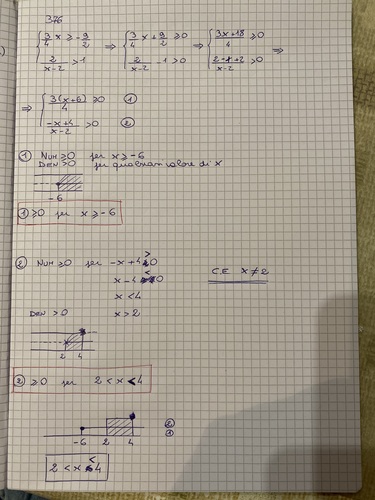 376
{ 3/4 x ≥ -9/2 ⇒ { 3/4 x + 9/2 ≥ 0 ⇒ { (3x+18)/4 ≥ 0
{ 2/(x-2) > 1 { 2/(x-2) - 1 > 0 { (2-x+2)/(x-2) > 0 ⇒
⇒ { 3(x+6)/4 ≥ 0 ①
{ (-x+4)/(x-2) > 0 ②
① NUM ≥0 per x ≥ -6
DEN >0 per qualsiasi valore di x
-6
① ≥0 per x ≥ -6
② NUM ≥0 per -x+4 > 0
x-4 < 0
CE x≠2
x < 4
DEN > 0 x > 2
2 4
② ≥0 per 2 < x < 4
②
①
-6 2 4
2 < x < 4